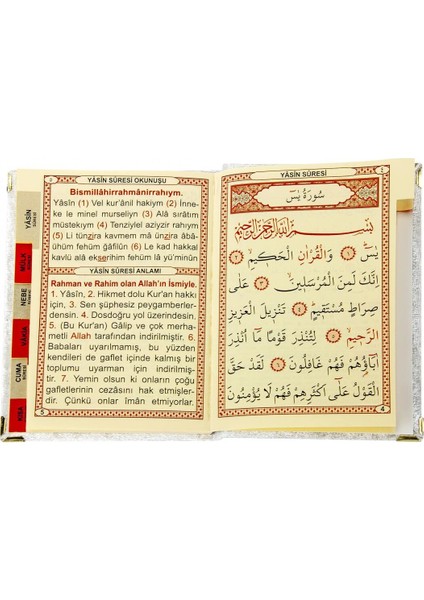 YÂSİN SÛRESİ OKUNUŞU
Bismillâhirrahmânirrahıym.
Yâsîn (1) Vel kur'ânil hakiym (2) İnne-
ke le minel murseliyn (3) Alâ sıratım
müstekıym (4) Tenziylel aziyzir rahıym
(5) Li tünzira kavmem mâ ünzira âbâ-
ühüm fehüm ğâfilûn (6) Le kad hakkal
kavlü alâ ekserihim fehüm lâ yü'minûn
YÂSİN SÛRESİ ANLAMI
Rahman ve Rahim olan Allah'ın İsmiyle.
1. Yâsîn, 2. Hikmet dolu Kur'an hakkı
için, 3. Sen şüphesiz peygamberler-
densin. 4. Dosdoğru yol üzerindesin.
5. (Bu Kur'an) Gâlip ve çok merha-
metli Allah tarafından indirilmiştir. 6.
Babaları uyarılmamış, bu yüzden
kendileri de gaflet içinde kalmış bir
toplumu uyarman için indirilmiş-
tir. 7. Yemin olsun ki onların çoğu
gafletlerinin cezasını hak etmişler-
dir. Çünkü onlar îman etmiyorlar.
5
YÂSİN SÛRESİ
سُورَةُ يٰسٓ
بِسْمِ اللّٰهِ الرَّحْمٰنِ الرَّحِيمِ
يٰسٓ ﴿١﴾ وَالْقُرْاٰنِ الْحَكِيمِ ﴿٢﴾
اِنَّكَ لَمِنَ الْمُرْسَلِينَ ﴿٣﴾ عَلٰى
صِرَاطٍ مُسْتَقِيمٍ ﴿٤﴾ تَنْزِيلَ الْعَزِيزِ
الرَّحِيمِ ﴿٥﴾ لِتُنْذِرَ قَوْمًا مَٓا اُنْذِرَ
اٰبَٓاؤُ۬هُمْ فَهُمْ غَافِلُونَ ﴿٦﴾ لَقَدْ حَقَّ
الْقَوْلُ عَلٰٓى اَكْثَرِهِمْ فَهُمْ لَا يُؤْمِنُونَ
4
YÂSİN
MÜLK
NEBE
VÂKIA
CUMA
KISA